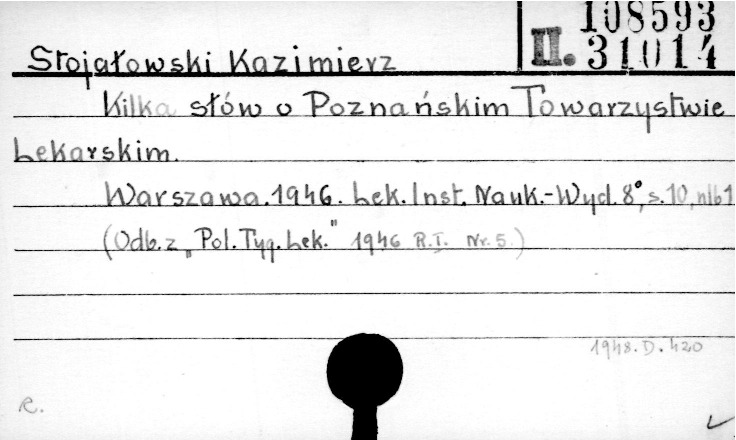 108593
II. 31014
Stojałowski Kazimierz
Kilka słów o Poznańskim Towarzystwie
Lekarskim.
Warszawa. 1946. Lek. Inst. Nauk.-Wyd. 8°, s. 10, nlb 1
(Odb. z „Pol. Tyg. Lek." 1946 R.I. Nr. 5.)
1948. D. 420
R.